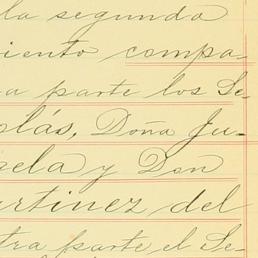 la segunda
iento compa-
a parte los Se-
olás, Doña Ju-
ela y Don
artinez del
tra parte el Se-